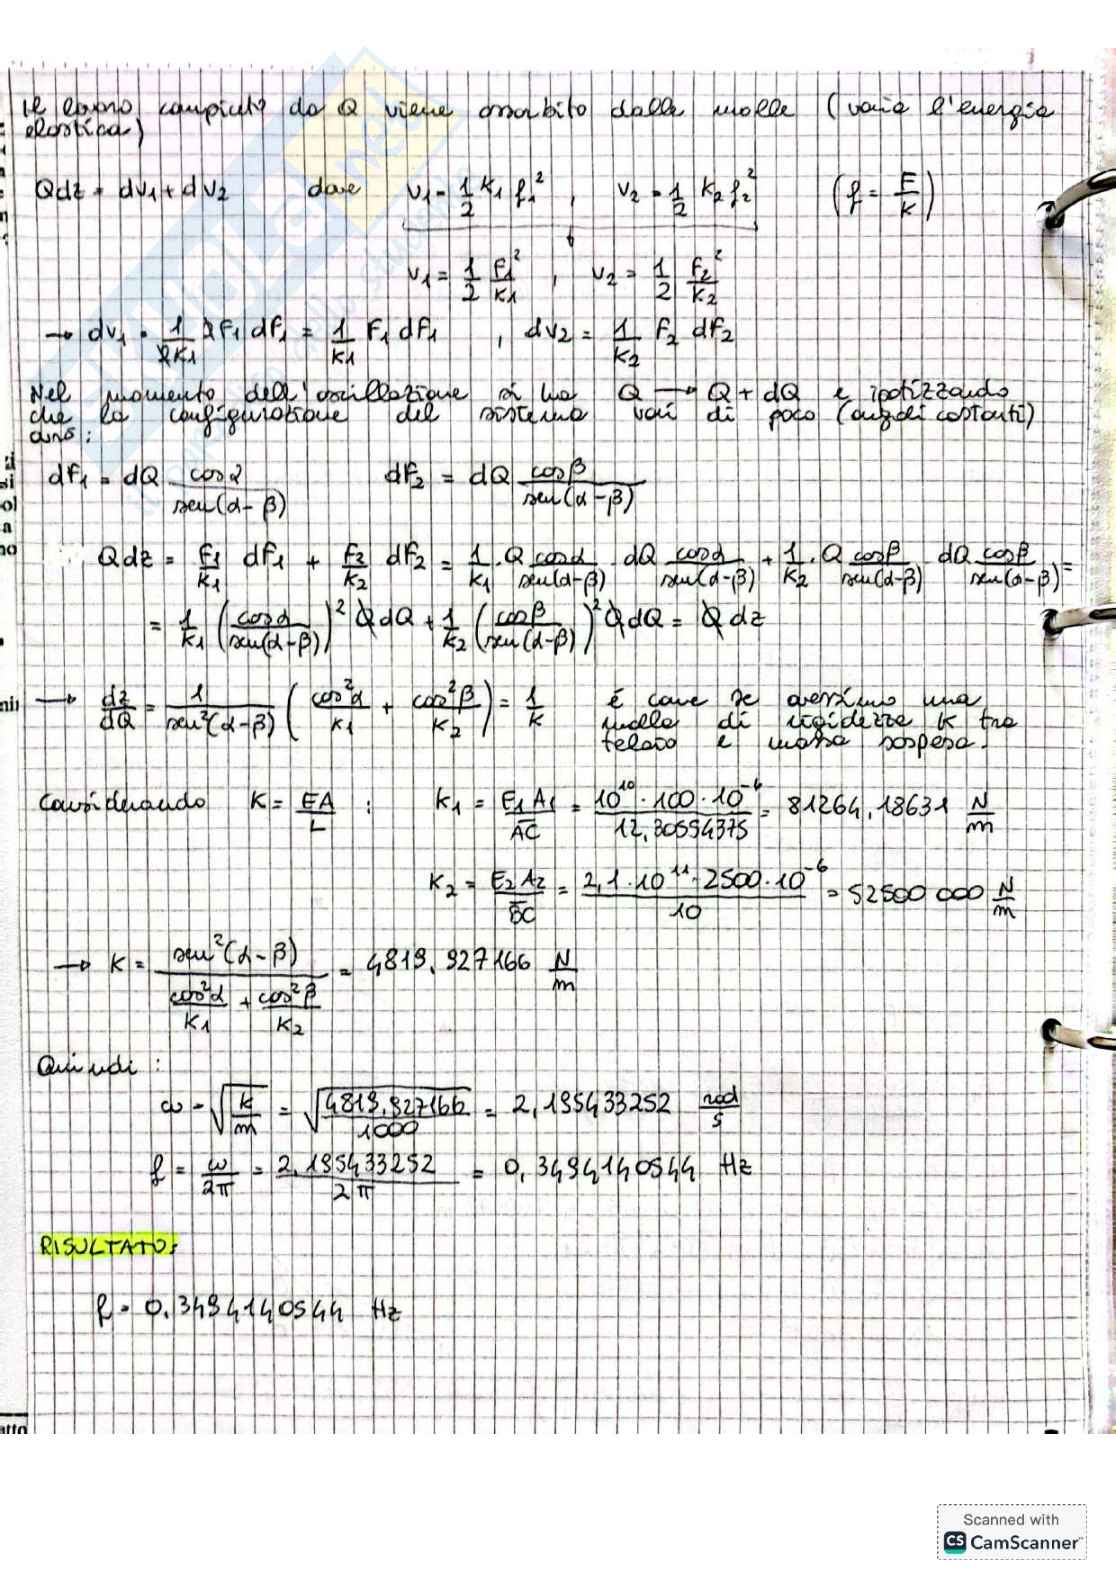 Il lavoro compiuto da Q viene assorbito dalle molle (varia l'energia
elastica)
Qdz = dV1 + dV2 dove V1 = 1/2 K1 f1², V2 = 1/2 K2 f2² (f = F/K)
V1 = 1/2 F1²/K1, V2 = 1/2 F2²/K2
→ dV1 = 1/2K1 2F1 dF1 = 1/K1 F1 dF1, dV2 = 1/K2 F2 dF2
Nel momento dell'oscillazione si ha Q → Q + dQ e ipotizzando
che la configurazione del sistema vari di poco (angoli costanti)
avrò:
dF1 = dQ cosα/sen(α-β) dF2 = dQ cosβ/sen(α-β)
Qdz = F1/K1 dF1 + F2/K2 dF2 = 1/K1 · Q cosα/sen(α-β) dQ cosα/sen(α-β) + 1/K2 · Q cosβ/sen(α-β) dQ cosβ/sen(α-β) =
= 1/K1 (cosα/sen(α-β))² QdQ + 1/K2 (cosβ/sen(α-β))² QdQ = Qdz
→ dz/dQ = 1/sen²(α-β) (cos²α/K1 + cos²β/K2) = 1/K è come se avessimo una
molla di rigidezza K tra
telaio e massa sospesa.
Considerando K = EA/L : K1 = E1A1/AC = 10¹⁰·100·10⁻⁶/12,30554375 = 81264,18631 N/m
K2 = E2A2/BC = 2,1·10¹¹·2500·10⁻⁶/10 = 52500 000 N/m
→ K = sen²(α-β)/(cos²α/K1 + cos²β/K2) = 4819,927166 N/m
Quindi:
ω = √(K/m) = √(4819,927166/1000) = 2,195433252 rad/s
f = ω/2π = 2,195433252/2π = 0,3494140544 Hz
RISULTATO:
f = 0,3494140544 Hz
Scanned with
CS CamScanner